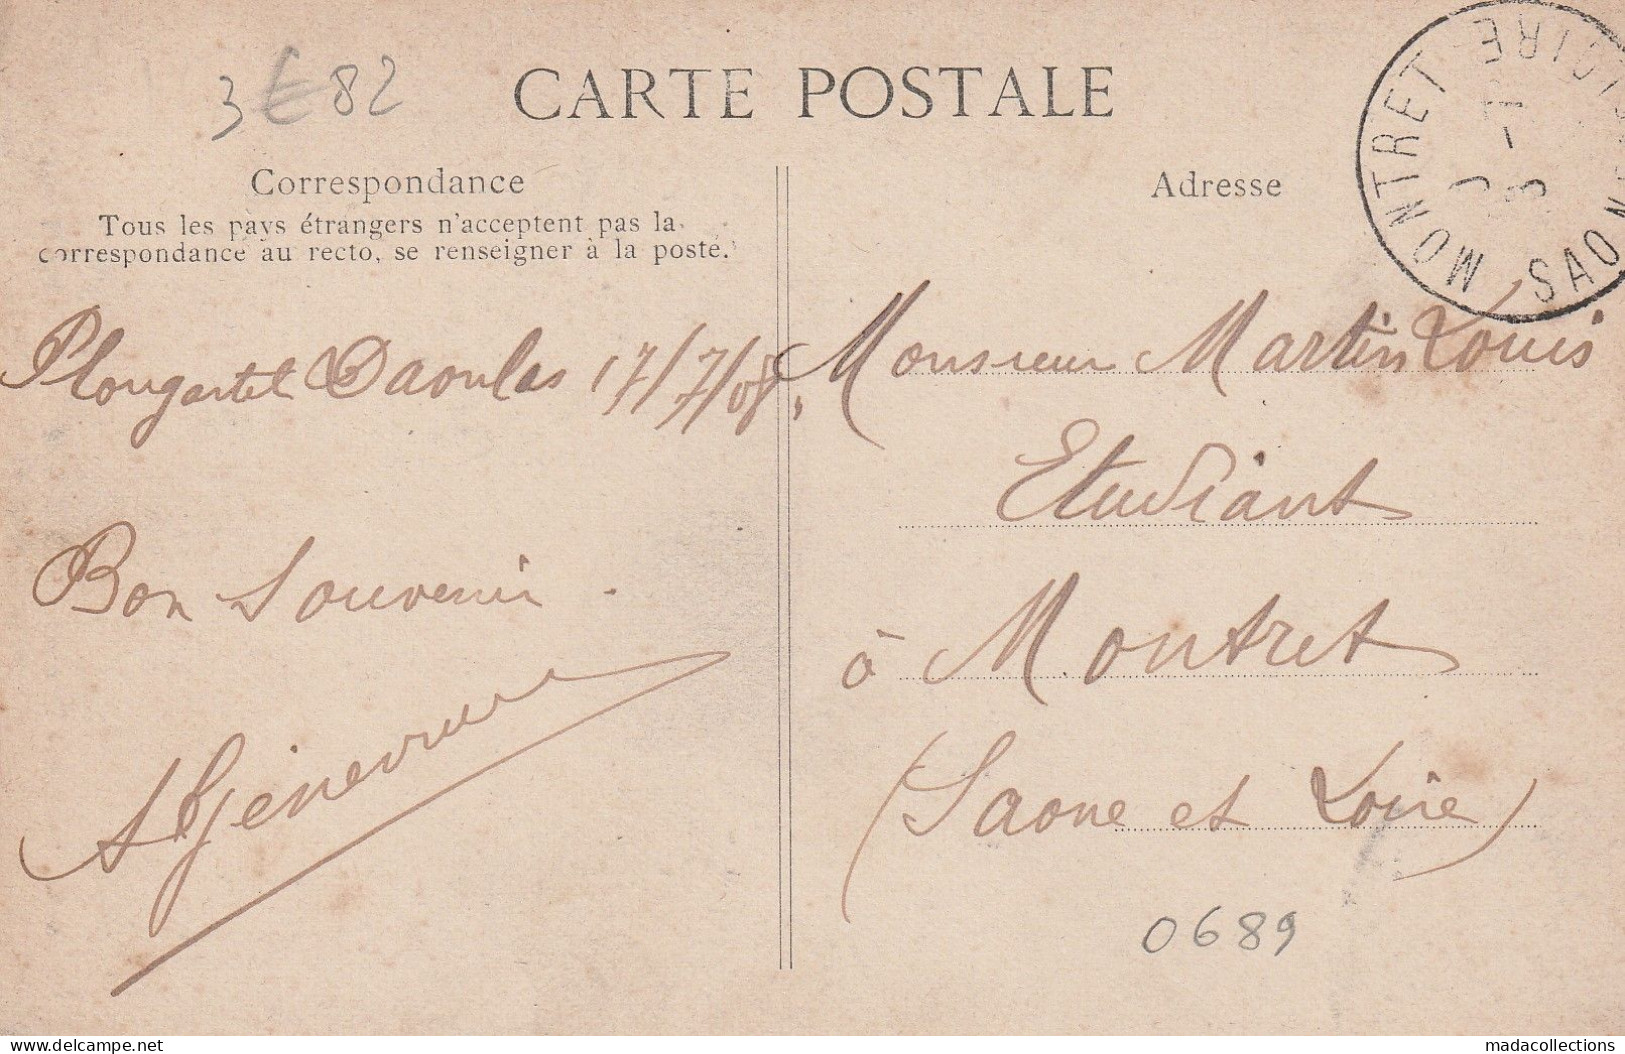 3€82
CARTE POSTALE
MONTRET SAONE
LOIRE
Correspondance
Adresse
Tous les pays étrangers n'acceptent pas la
correspondance au recto, se renseigner à la poste.
Plougastel Daoulas 17/7/08,
Monsieur Martin Louis
Etudiant
Bon Souvenir.
à Montret
(Saone et Loire)
0689
delcampe.net
madacollections